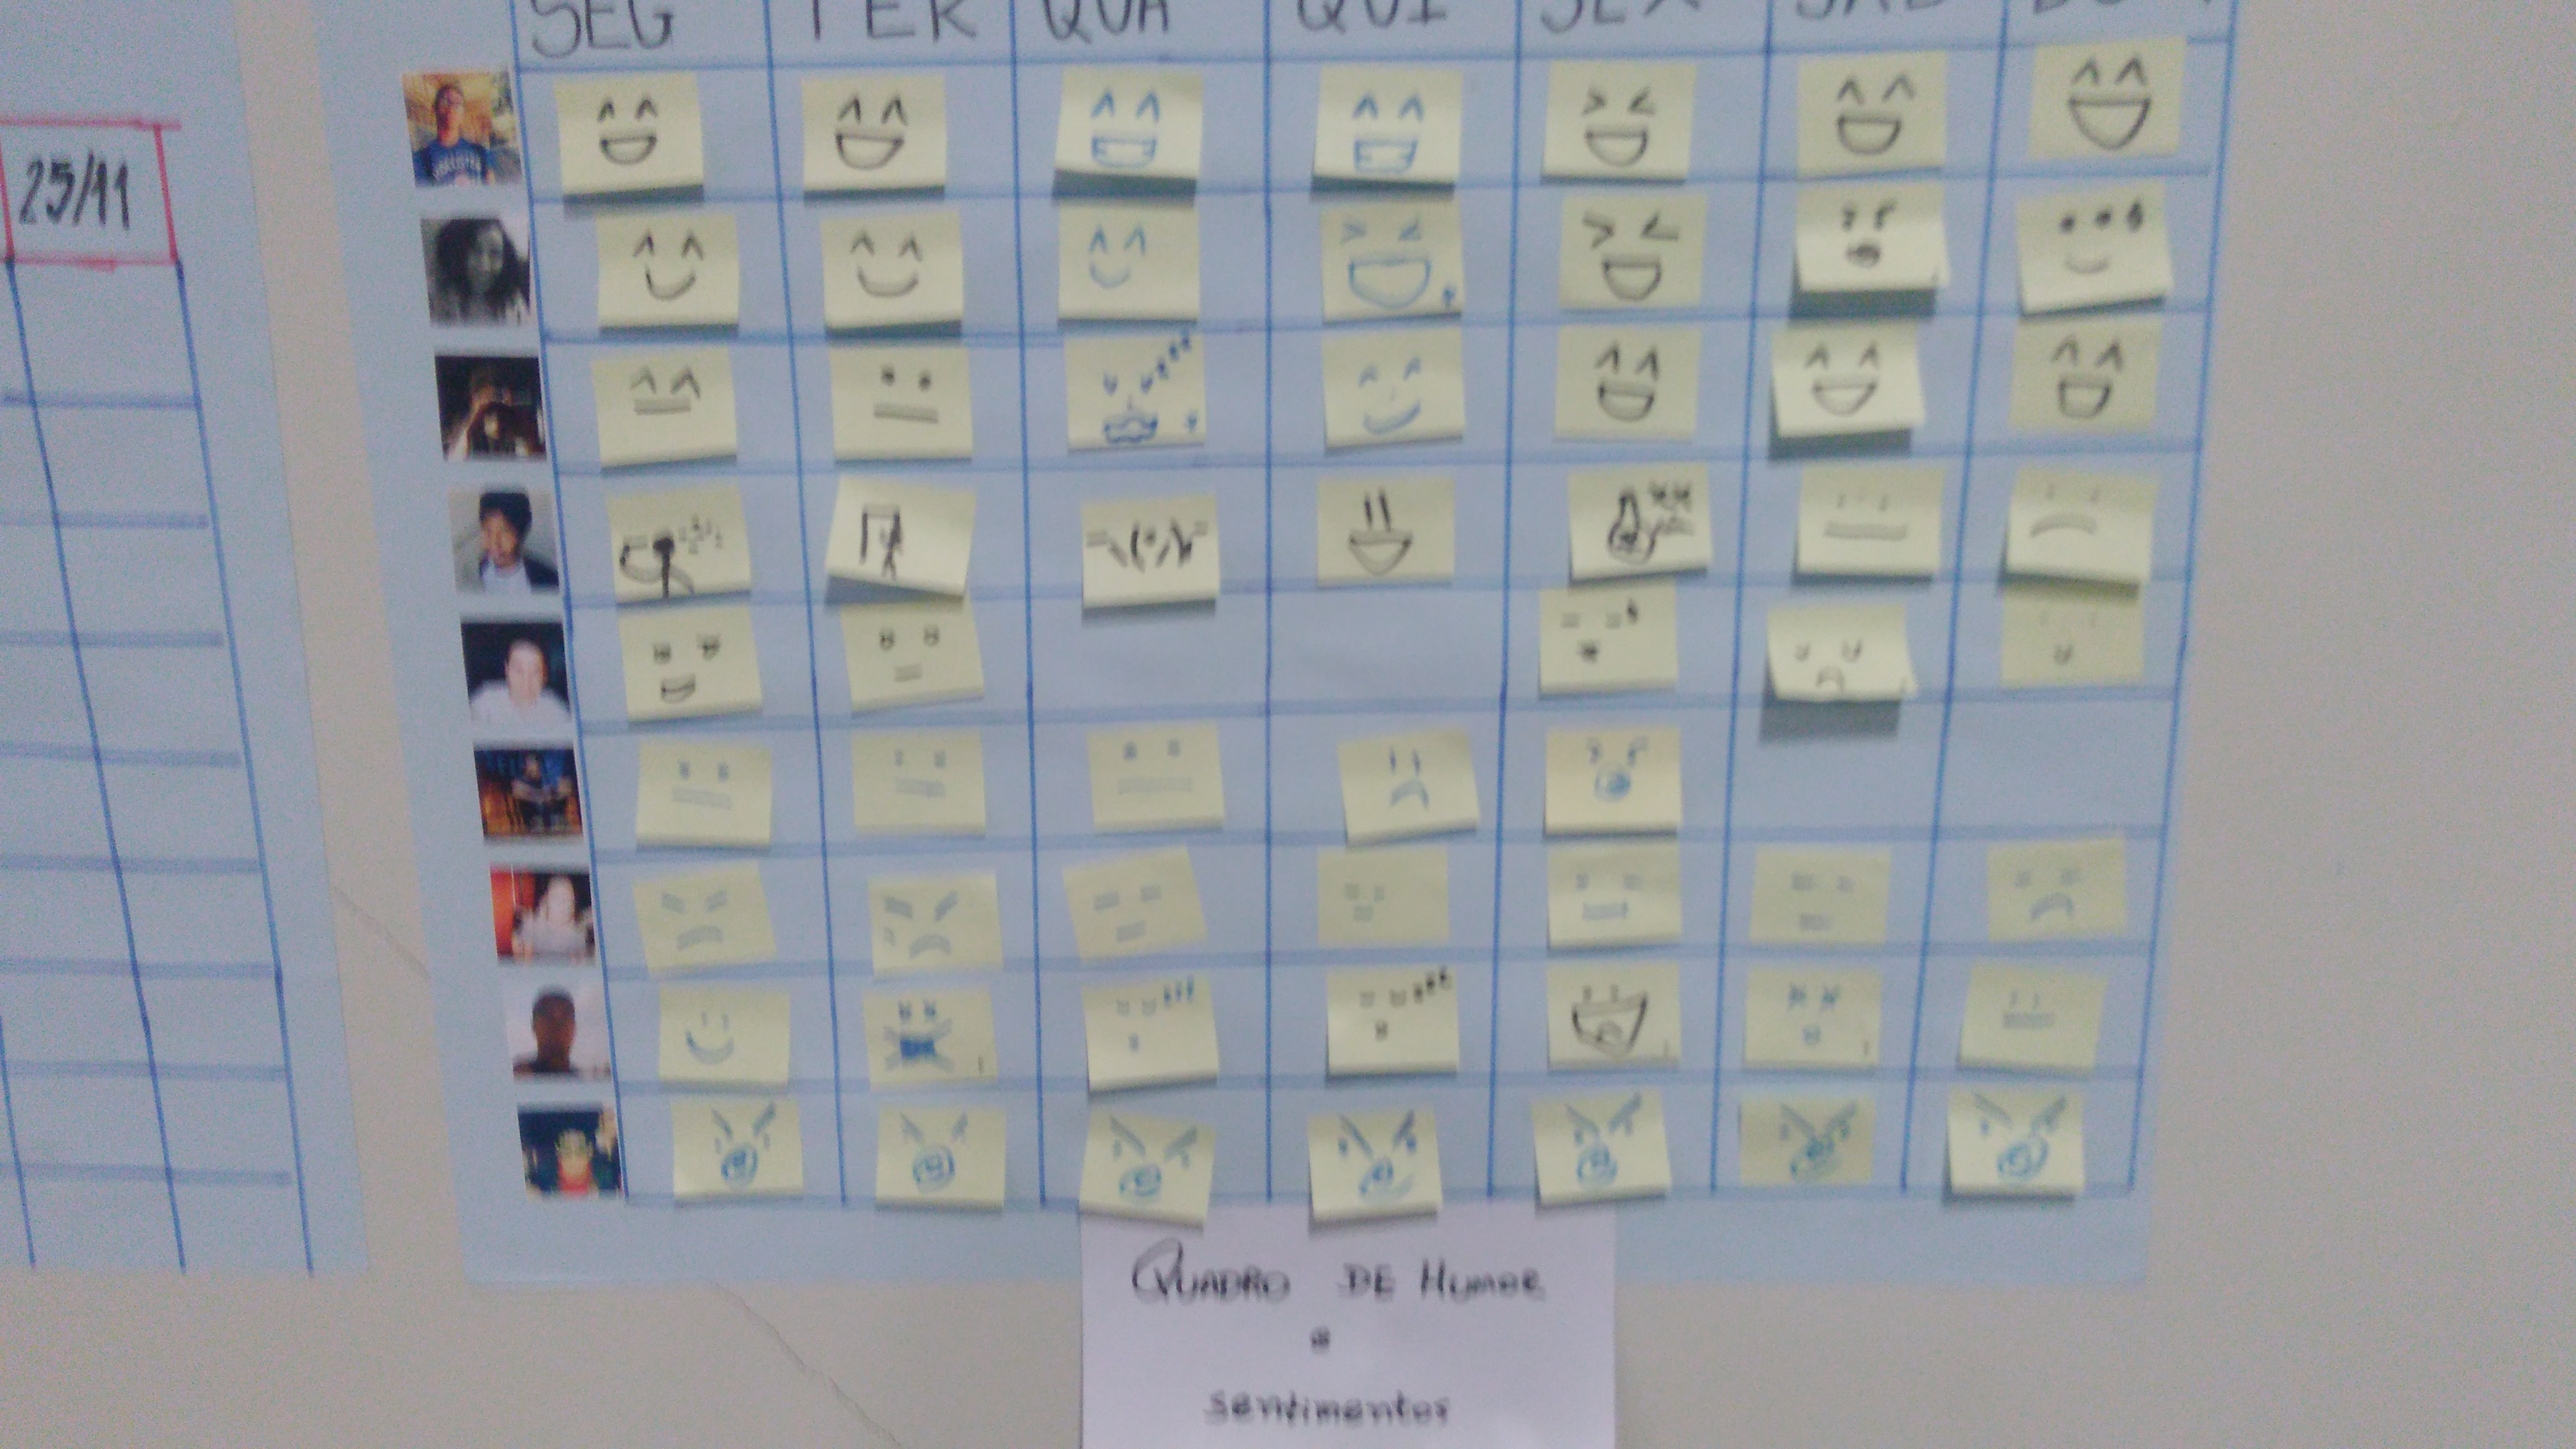 SEG TER QUA QUI SEX SAB DOM
25/11
QUADRO DE HUMOR
e
sentimentos